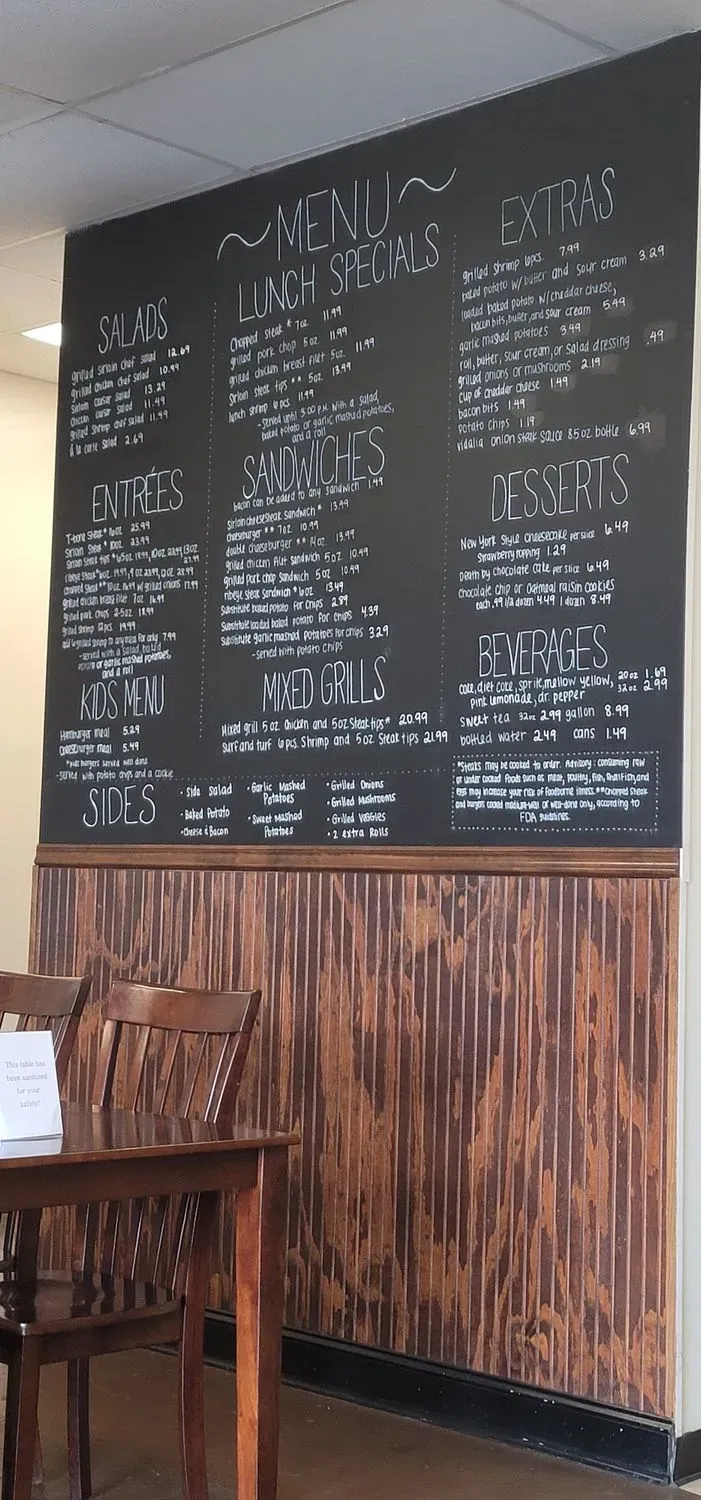 MENU
SALADS
grilled sirloin chef salad 12.69
grilled chicken chef salad 10.99
Sirloin caesar salad 13.29
Chicken caesar salad 11.49
grilled shrimp chef salad 11.49
À la carte salad 2.69
ENTRÉES
T-bone Steak* 16oz 25.99
Sirloin Steak * 10oz 23.99
Sirloin Steak tips
grilled chicken breast filet 7oz 16.99
grilled pork chops 2-5oz 18.99
grilled shrimp 12pcs 19.99
add 6 grilled shrimp to any meal for only 7.99
-served with a Salad, baked
potato or garlic mashed potatoes,
and a roll
KIDS MENU
Hamburger meal 5.29
Cheeseburger meal 5.49
*kids burgers served well done
-served with potato chips and a cookie
LUNCH SPECIALS
Chopped Steak * 7oz 11.99
grilled pork chop 5oz 11.99
grilled chicken breast filet 5oz. 11.99
Sirloin steak tips ** 5oz. 13.99
lunch shrimp 6pcs. 11.99
-served until 3:00 P.M. with a salad,
baked potato or garlic mashed potatoes,
and a roll
SANDWICHES
bacon can be added to any sandwich 1.49
Sirloin cheesesteak Sandwich* 13.99
cheeseburger ** 7oz 10.99
double cheeseburger ** 14oz 13.99
grilled chicken filet sandwich 5oz 10.49
grilled pork chop sandwich 5oz 10.99
ribeye steak sandwich *6oz 13.49
Substitute baked potato for chips 2.89
Substitute loaded baked potato for chips 4.39
Substitute garlic mashed potatoes for chips 3.29
-served with potato chips
MIXED GRILLS
Mixed grill 5oz Chicken and 5oz Steak tips* 20.99
Surf and turf 6pcs. Shrimp and 5oz Steak tips 21.99
EXTRAS
grilled shrimp 6pcs. 7.99
baked potato w/ butter and sour cream 3.29
loaded baked potato w/cheddar cheese,
bacon bits, butter, and sour cream 5.49
garlic mashed potatoes 3.49
roll, butter, sour cream, or salad dressing .49
grilled onions or mushrooms 2.19
cup of cheddar cheese 1.49
bacon bits 1.49
potato chips 1.19
vidalia onion steak sauce 8.5oz bottle 6.99
DESSERTS
New York Style cheesecake per slice 6.49
Strawberry topping 1.29
Death by chocolate cake per slice 6.49
chocolate chip or oatmeal raisin cookies
each .99 1/2 dozen 4.49 1 dozen 8.49
BEVERAGES
coke, diet coke, sprite, mellow yellow, 20oz 1.69
pink lemonade, dr. pepper 32oz 2.99
sweet tea 32oz 2.99 gallon 8.99
bottled water 2.49 cans 1.49
*Steaks may be cooked to order. Advisory: consuming raw
or under cooked foods such as meat, poultry, fish, shellfish, and
eggs may increase your risk of foodborne illness. **Chopped Steak
and burgers cooked medium-well or well-done only, according to
FDA guidelines.
SIDES
• Side Salad
• Baked Potato
• Cheese & Bacon
• Garlic Mashed
Potatoes
• Sweet Mashed
Potatoes
• Grilled Onions
• Grilled Mushrooms
• Grilled Veggies
• 2 extra Rolls
This table has
been sanitized
for your
safety!